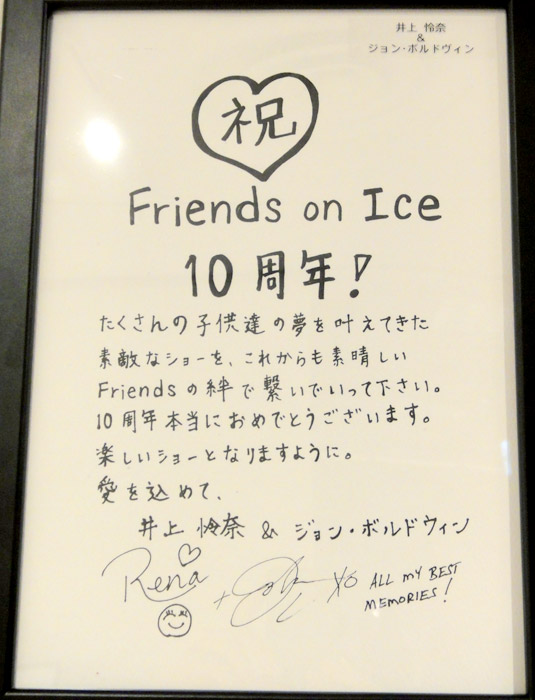 井上 怜奈
&
ジョン・ボルドヴィン
祝
Friends on Ice
10周年!
たくさんの子供達の夢を叶えてきた
素敵なショーを、これからも素晴しい
Friendsの絆で繋いでいって下さい。
10周年本当におめでとうございます。
楽しいショーとなりますように。
愛を込めて、
井上 怜奈 & ジョン・ボルドウィン
Rena
XO ALL MY BEST
MEMORIES!